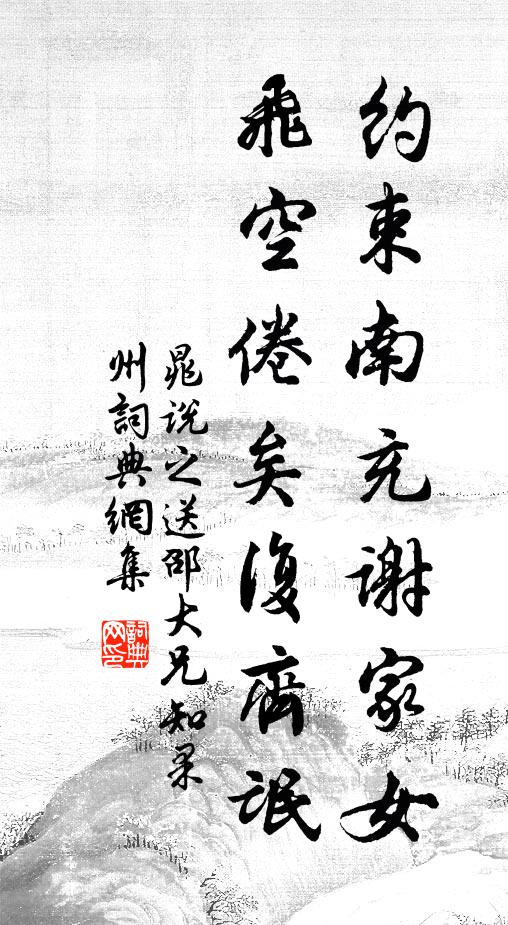 約束南充謝家女
飛空倦矣復齊氓
晁說之送邵大兄知果
州詞典網集
詞典
网印